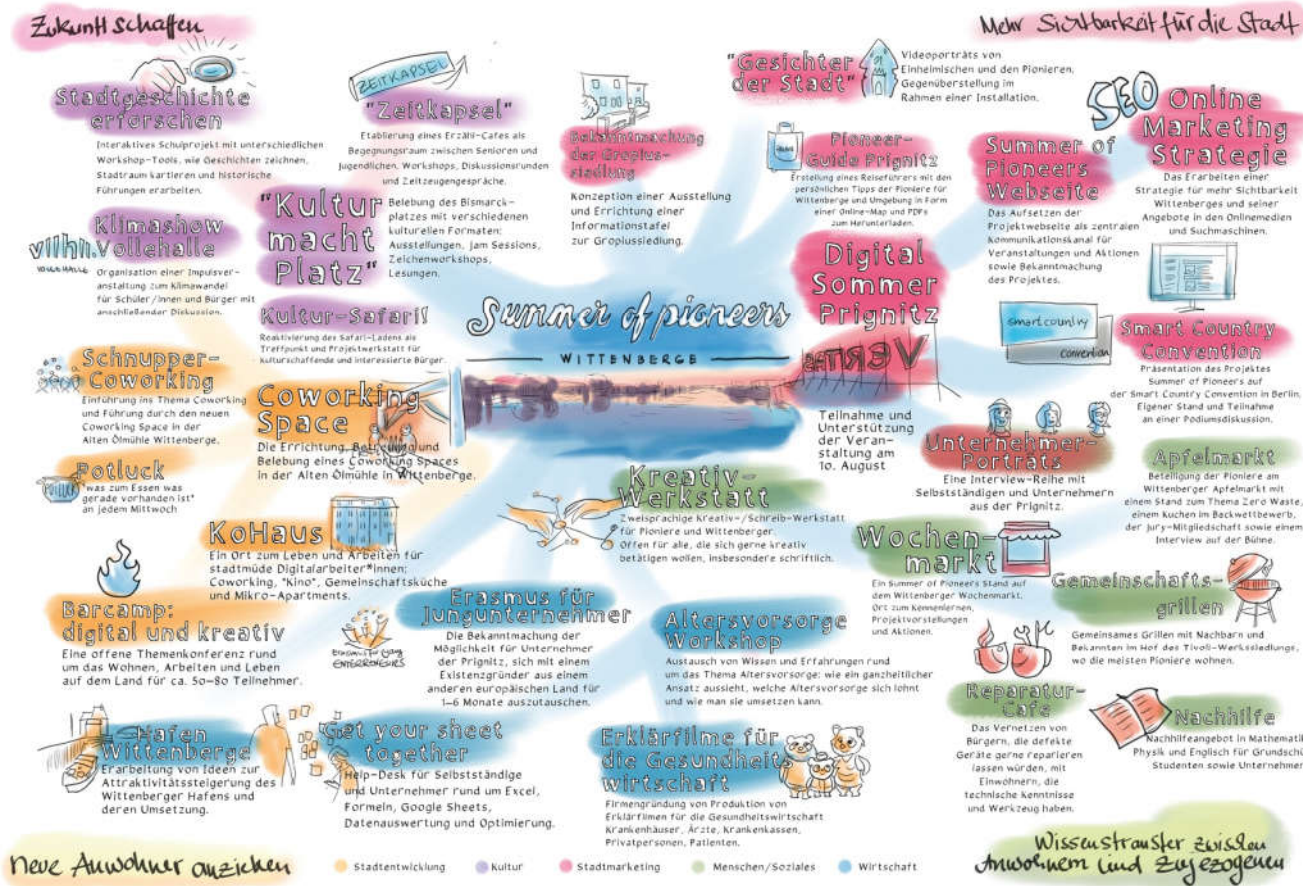 Zukunft schaffen
Mehr Sichtbarkeit für die Stadt
Stadtgeschichte
erforschen
Interaktives Schulprojekt mit unterschiedlichen
Workshop-Tools, wie Geschichten zeichnen,
Stadtraum kartieren und historische
Führungen erarbeiten.
ZEITKAPSEL
"Zeitkapsel"
Etablierung eines Erzähl-Cafes als
Begegnungsraum zwischen Senioren und
Jugendlichen, Workshops, Diskussionsrunden
und Zeitzeugengespräche.
Bekanntmachung
der Gropius-
siedlung
Konzeption einer Ausstellung
und Errichtung einer
Informationstafel
zur Gropiussiedlung.
"Gesichter
der Stadt"
Videoporträts von
Einheimischen und den Pionieren.
Gegenüberstellung im
Rahmen einer Installation.
Pioneer-
Guide Prignitz
Erstellung eines Reiseführers mit den
persönlichen Tipps der Pioniere für
Wittenberge und Umgebung in Form
einer Online-Map und PDFs
zum Herunterladen.
Summer of
Pioneers
Webseite
Das Aufsetzen der
Projektwebseite als zentralen
Kommunikationskanal für
Veranstaltungen und Aktionen
sowie Bekanntmachung
des Projektes.
SEO
Online
Marketing
Strategie
Das Erarbeiten einer
Strategie für mehr Sichtbarkeit
Wittenberges und seiner
Angebote in den Onlinemedien
und Suchmaschinen.
Klimashow
Vollehalle
VOLLEHALLE
Organisation einer Impulsver-
anstaltung zum Klimawandel
für Schüler/innen und Bürger mit
anschließender Diskussion.
"Kultur
macht
Platz"
Belebung des Bismarck-
platzes mit verschiedenen
kulturellen Formaten:
Ausstellungen, Jam Sessions,
Zeichenworkshops,
Lesungen.
Kultur-Safari!
Reaktivierung des Safari-Ladens als
Treffpunkt und Projektwerkstatt für
kulturschaffende und interessierte Bürger.
Summer of pioneers
WITTENBERGE
Digital
Sommer
Prignitz
VERTHE
Teilnahme und
Unterstützung
der Veran-
staltung am
10. August
smart country
convention
Smart Country
Convention
Präsentation des Projektes
Summer of Pioneers auf
der Smart Country Convention in Berlin.
Eigener Stand und Teilnahme
an einer Podiumsdiskussion.
Schnupper-
Coworking
Einführung ins Thema Coworking
und Führung durch den neuen
Coworking Space in der
Alten Ölmühle Wittenberge.
Coworking
Space
Die Errichtung, Betreuung und
Belebung eines Coworking Spaces
in der Alten Ölmühle in Wittenberge.
Potluck
POTLUCK
"was zum Essen was
gerade vorhanden ist"
an jedem Mittwoch
Unternehmer-
Porträts
Eine Interview-Reihe mit
Selbstständigen und Unternehmern
aus der Prignitz.
Apfelmarkt
Beteiligung der Pioniere am
Wittenberger Apfelmarkt mit
einem Stand zum Thema Zero Waste,
einem Kuchen im Backwettbewerb,
der Jury-Mitgliedschaft sowie einem
Interview auf der Bühne.
Kreativ-
Werkstatt
Zweisprachige Kreativ-/Schreib-Werkstatt
für Pioniere und Wittenberger.
Offen für alle, die sich gerne kreativ
betätigen wollen, insbesondere schriftlich.
KoHaus
Ein Ort zum Leben und Arbeiten für
stadtmüde Digitalarbeiter*innen:
Coworking, "Kino", Gemeinschaftsküche
und Mikro-Apartments.
Wochen-
markt
Ein Summer of Pioneers Stand auf
dem Wittenberger Wochenmarkt.
Ort zum Kennenlernen,
Projektvorstellungen
und Aktionen.
Gemeinschafts-
grillen
Gemeinsames Grillen mit Nachbarn und
Bekannten im Hof des Tivoli-Werkssiedlungs,
wo die meisten Pioniere wohnen.
Barcamp:
digital und kreativ
Eine offene Themenkonferenz rund
um das Wohnen, Arbeiten und Leben
auf dem Land für ca. 50-80 Teilnehmer.
Erasmus for young
ENTERPRENEURS
Erasmus für
Jungunternehmer
Die Bekanntmachung der
Möglichkeit für Unternehmer
der Prignitz, sich mit einem
Existenzgründer aus einem
anderen europäischen Land für
1-6 Monate auszutauschen.
Altersvorsorge
Workshop
Austausch von Wissen und Erfahrungen rund
um das Thema Altersvorsorge: wie ein ganzheitlicher
Ansatz aussieht, welche Altersvorsorge sich lohnt
und wie man sie umsetzen kann.
Reparatur-
Cafe
Das Vernetzen von
Bürgern, die defekte
Geräte gerne reparieren
lassen würden, mit
Einwohnern, die
technische Kenntnisse
und Werkzeug haben.
Nachhilfe
Nachhilfeangebot in Mathematik
Physik und Englisch für Grundschü
Studenten sowie Unternehmer
Hafen
Wittenberge
Erarbeitung von Ideen zur
Attraktivitätssteigerung des
Wittenberger Hafens und
deren Umsetzung.
Get your sheet
together
Help-Desk für Selbstständige
und Unternehmer rund um Excel,
Formeln, Google Sheets,
Datenauswertung und Optimierung.
Erklärfilme für
die Gesundheits
wirtschaft
Firmengründung von Produktion von
Erklärfilmen für die Gesundheitswirtschaft
Krankenhäuser, Ärzte, Krankenkassen,
Privatpersonen, Patienten.
Neue Anwohner anziehen
Stadtentwicklung
Kultur
Stadtmarketing
Menschen/Soziales
Wirtschaft
Wissenstransfer zwischen
Anwohnern und Zugezogenen